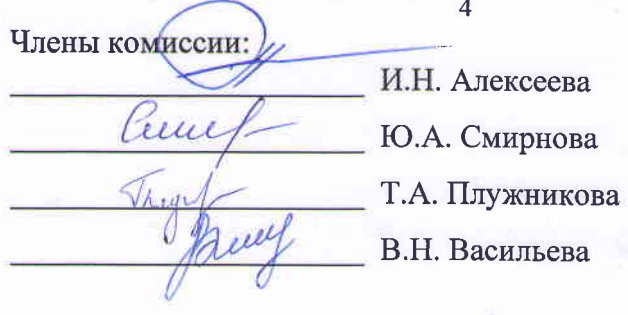 4
Члены комиссии:
И.Н. Алексеева
Ю.А. Смирнова
Т.А. Плужникова
В.Н. Васильева